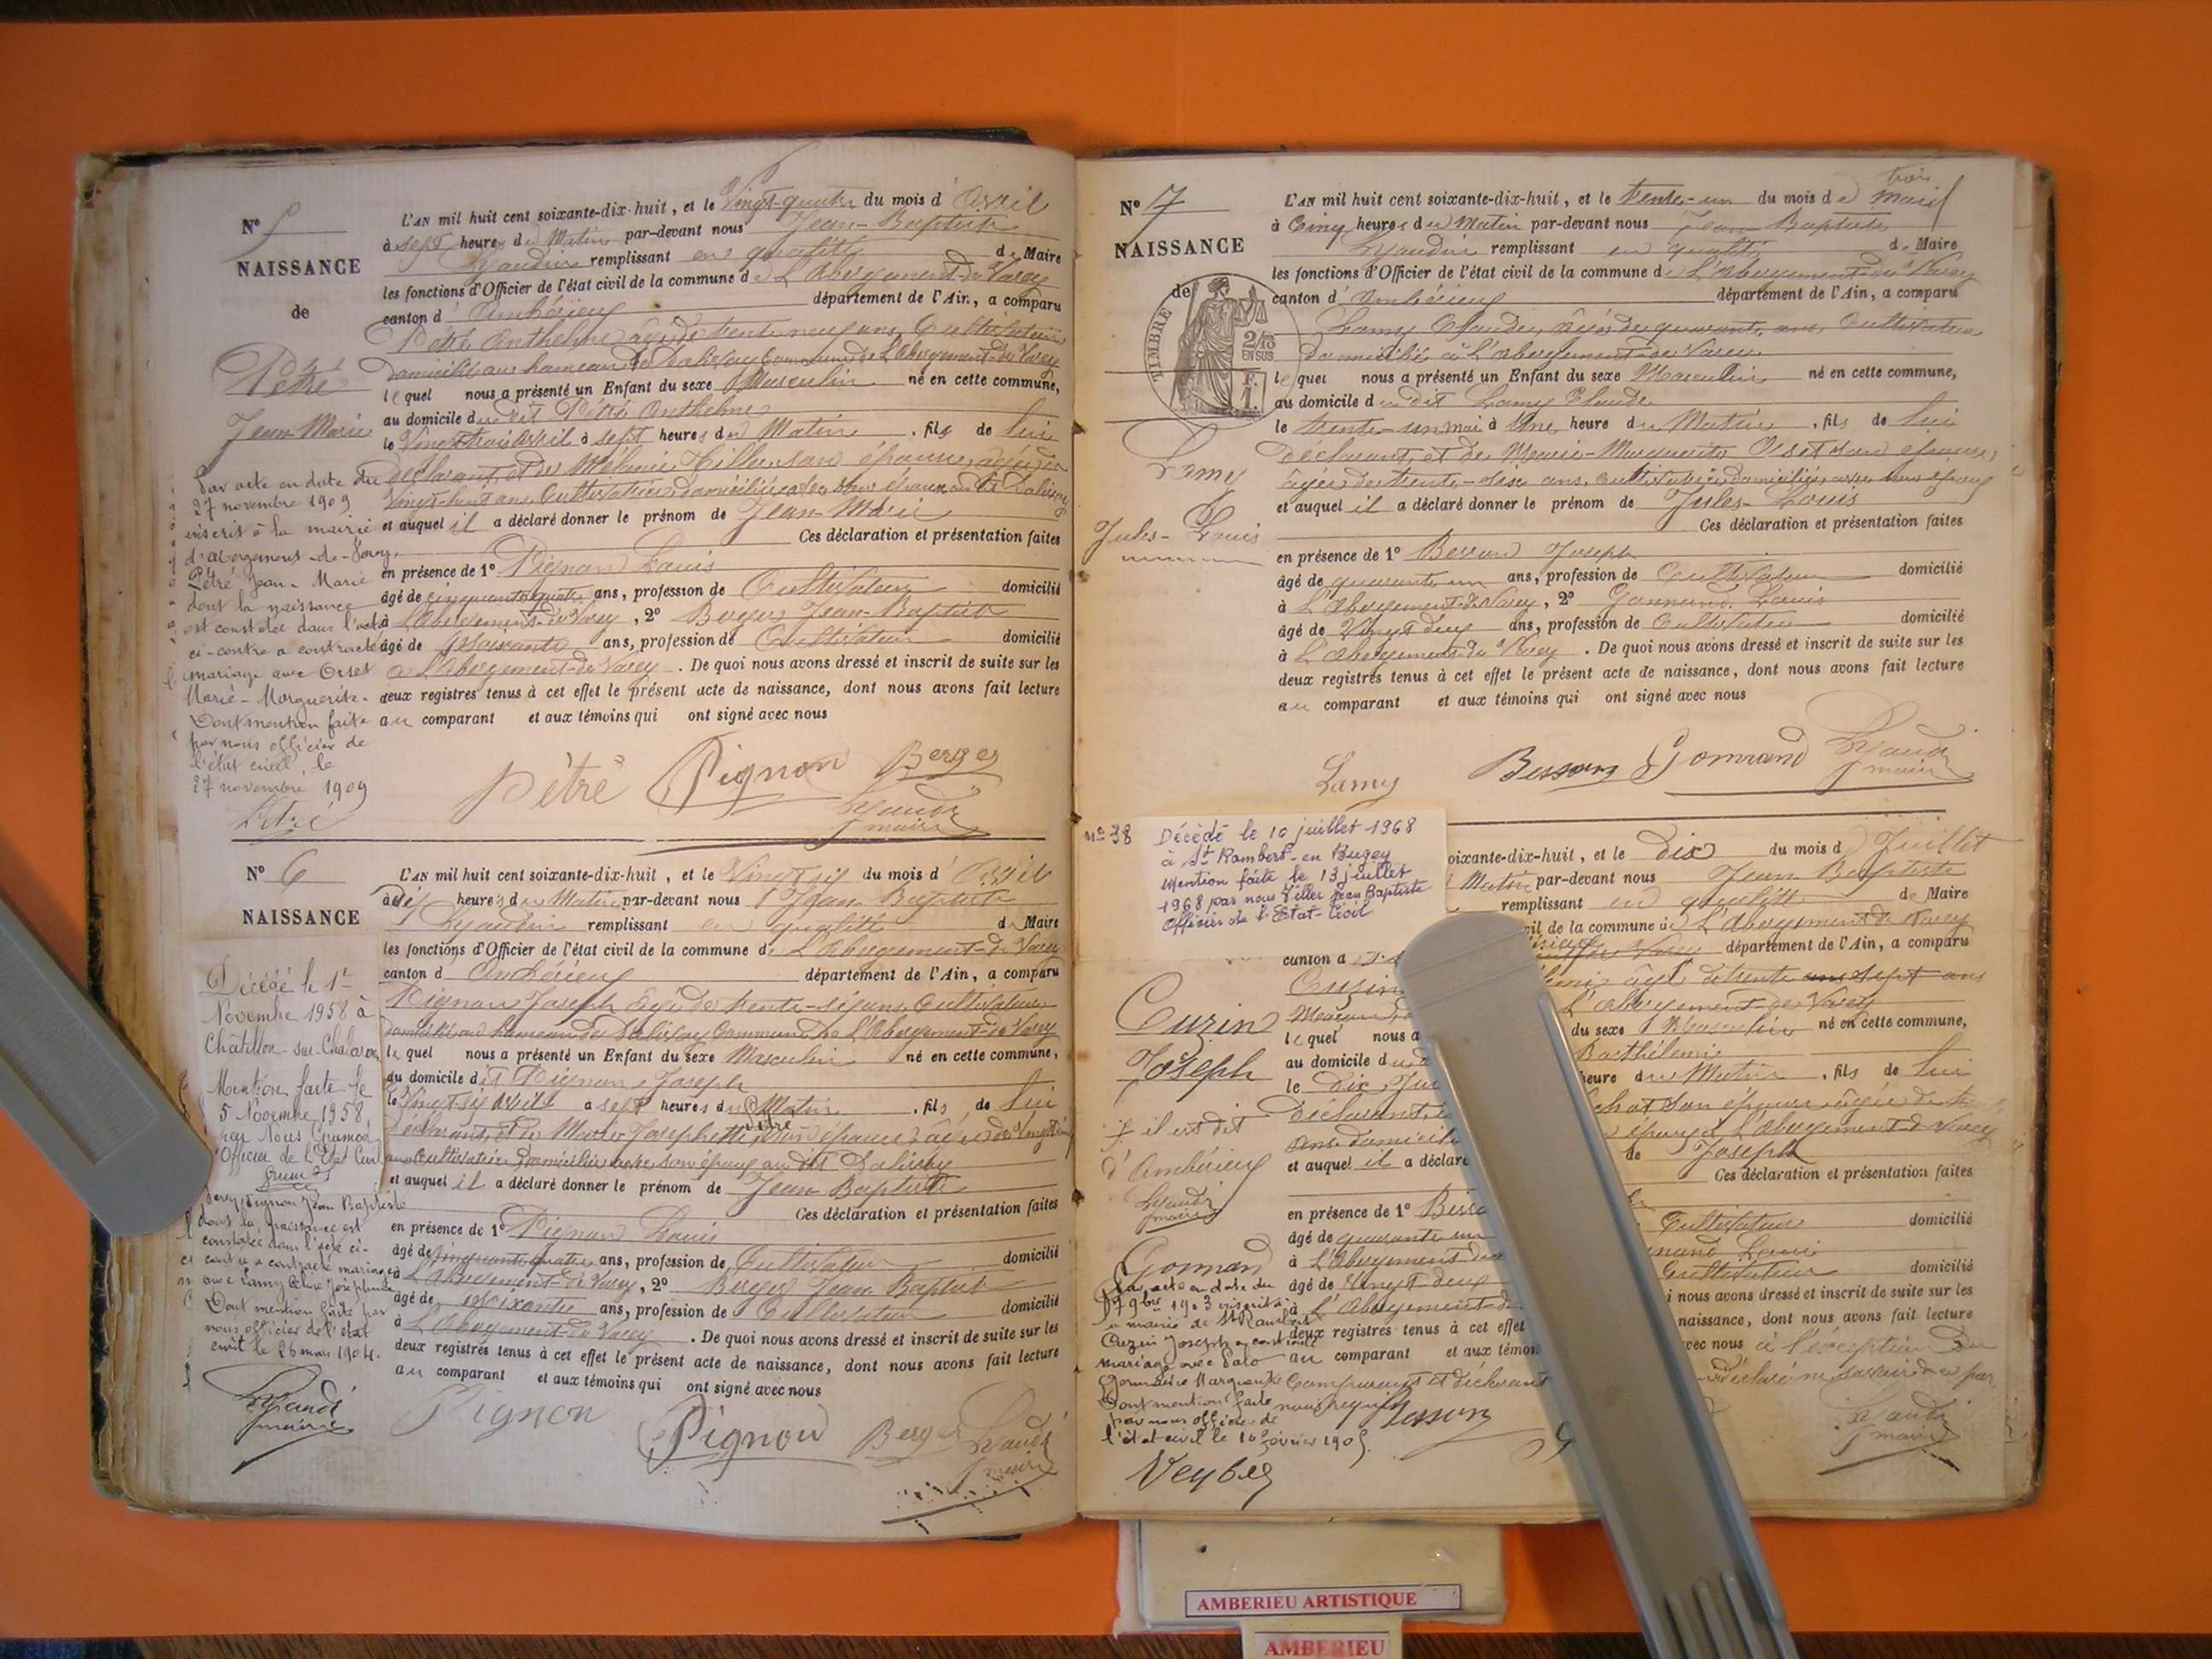 N° 5
NAISSANCE
de
Pétré
Jean Marie
Par acte en date du
27 novembre 1909
inscrit à la mairie
d'Abergement-de-Varey,
Pétré Jean-Marie
dont la naissance
est constatée dans l'acte
ci-contre a contracté
mariage avec Orset
Marie-Marguerite.
Dont mention faite
par nous officier de
l'état civil, le
27 novembre 1909
Pétré
L'AN mil huit cent soixante-dix-huit, et le Vingt-quatre du mois d'Avril
à sept heures du Matin par-devant nous Jean-Baptiste
remplissant en qualité de Maire
les fonctions d'Officier de l'état civil de la commune de L'Abergement-de-Varey
canton d'Ambérieu département de l'Ain, a comparu
Pétré Anthelme âgé de trente neuf ans, Cultivateur
domicilié au hameau de Salivoy Commune de L'Abergement-de-Varey
lequel nous a présenté un Enfant du sexe Masculin né en cette commune,
au domicile du dit Pétré Anthelme
le Vingt trois Avril à sept heures du Matin, fils de lui
déclarant, et de Mélanie Tiller son épouse, âgée de
Vingt-huit ans, Cultivatrice domiciliée avec son époux au dit Salivoy
et auquel il a déclaré donner le prénom de Jean-Marie
Ces déclaration et présentation faites
en présence de 1° Pignon Louis
âgé de cinquante quatre ans, profession de Cultivateur domicilié
à L'Abergement-de-Varey, 2° Berger Jean-Baptiste
âgé de soixante ans, profession de Cultivateur domicilié
à L'Abergement-de-Varey. De quoi nous avons dressé et inscrit de suite sur les
deux registres tenus à cet effet le présent acte de naissance, dont nous avons fait lecture
au comparant et aux témoins qui ont signé avec nous
Pétré Pignon Berger
maire
N° 6
NAISSANCE
Décédé le 1er
Novembre 1958 à
Châtillon-sur-Chalaronne
Mention faite le
5 Novembre 1958
par Nous
Officier de l'Etat Civil
Pignon Jean Baptiste
dont la naissance est
constatée dans l'acte ci-
contre a contracté mariage
avec Lamy Céline Joséphine
Dont mention faite par
nous officier de l'état
civil le 26 mars 1904.
maire
L'AN mil huit cent soixante-dix-huit, et le Vingt six du mois d'Avril
à dix heures du Matin par-devant nous Jean Baptiste
remplissant en qualité de Maire
les fonctions d'Officier de l'état civil de la commune de L'Abergement-de-Varey
canton d'Ambérieu département de l'Ain, a comparu
Pignon Joseph âgé de trente-six ans, Cultivateur
domicilié au hameau de Salivoy Commune de L'Abergement-de-Varey
lequel nous a présenté un Enfant du sexe Masculin né en cette commune,
au domicile dit Pignon Joseph
le Vingt six Avril à sept heures du Matin, fils de lui
déclarant, et de Josephette Pétré son épouse âgée de
ans Cultivatrice domiciliée avec son époux au dit Salivoy
et auquel il a déclaré donner le prénom de Jean Baptiste
Ces déclaration et présentation faites
en présence de 1° Pignon Louis
âgé de cinquante quatre ans, profession de Cultivateur domicilié
à L'Abergement-de-Varey, 2° Berger Jean Baptiste
âgé de soixante ans, profession de Cultivateur domicilié
à L'Abergement-de-Varey. De quoi nous avons dressé et inscrit de suite sur les
deux registres tenus à cet effet le présent acte de naissance, dont nous avons fait lecture
au comparant et aux témoins qui ont signé avec nous
Pignon Pignon Berger
maire
N° 7
NAISSANCE
de
TIMBRE
2/10
EN SUS
F.
1.
Lamy
Jules-Louis
L'AN mil huit cent soixante-dix-huit, et le trente-un du mois de mai
à Cinq heures du Matin par-devant nous Jean Baptiste
remplissant en qualité de Maire
les fonctions d'Officier de l'état civil de la commune de L'Abergement-de-Varey
canton d'Ambérieu département de l'Ain, a comparu
Lamy Claude, âgé de quarante ans, Cultivateur
domicilié à L'Abergement-de-Varey
lequel nous a présenté un Enfant du sexe Masculin né en cette commune,
au domicile du dit Lamy Claude
le trente-un mai à Une heure du Matin, fils de lui
déclarant, et de Marie-Marguerite Orset son épouse
âgée de trente-six ans, Cultivatrice domiciliée avec son époux
et auquel il a déclaré donner le prénom de Jules-Louis
Ces déclaration et présentation faites
en présence de 1° Besson Joseph
âgé de quarante un ans, profession de Cultivateur domicilié
à L'Abergement-de-Varey, 2° Gonnand Louis
âgé de Vingt deux ans, profession de Cultivateur domicilié
à L'Abergement-de-Varey. De quoi nous avons dressé et inscrit de suite sur les
deux registres tenus à cet effet le présent acte de naissance, dont nous avons fait lecture
au comparant et aux témoins qui ont signé avec nous
Lamy Besson Gonnand
maire
N° 38 Décédé le 10 juillet 1968
à St Rambert-en Bugey
Mention faite le 13 juillet
1968 par nous Tiller Jean Baptiste
Officier de l'Etat-Civil
Cuzin
Joseph
il est dit
d'Ambérieu
maire
Gonnand
Par acte en date du
17 9bre 1903 inscrit à
la mairie de St Rambert
Cuzin Joseph a contracté
mariage avec
Germaine Marguerite
Dont mention faite
par nous officier de
l'état civil le 10 février 1905.
oixante-dix-huit, et le dix du mois d Juillet
Matin par-devant nous Jean Baptiste
remplissant en qualité de Maire
vil de la commune de L'Abergement de Varey
canton d département de l'Ain, a comparu
Cuzin âgé de trente sept ans
L'Abergement de Varey
lequel nous a du sexe Masculin né en cette commune,
au domicile du Barthélemi
le dix Jui heure du Matin, fils de lui
déclarant, son épouse âgée de
L'Abergement de Varey
et auquel il a déclaré de Joseph
Ces déclaration et présentation faites
en présence de 1° Besso
âgé de quarante un Cultivateur domicilié
à L'Abergement de nnand Louis
âgé de Vingt-deux Cultivateur domicilié
à L'Abergement-de i nous avons dressé et inscrit de suite sur les
deux registres tenus à cet effet naissance, dont nous avons fait lecture
au comparant et aux témoi vec nous à l'exception du
Comparant et déclarant
Besson
maire
AMBERIEU ARTISTIQUE
AMBERIEU